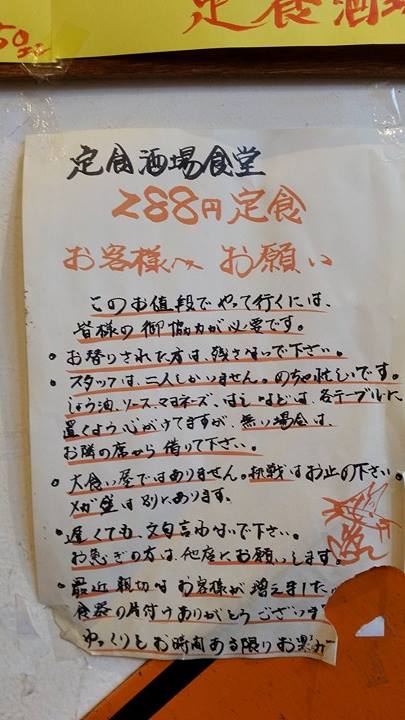 50
定食酒場
定食酒場食堂
288円定食
お客様へ お願い
このお値段でやって行くには、
皆様の御協力が必要です。
・お替りされた方は、残さないで下さい。
・スタッフは、二人しかいません。のちゃ忙しいです。
しょう油、ソース、マヨネーズ、はしなどは、各テーブルに
置くよう心がけてますが、無い場合は、
お隣の席から借りて下さい。
・大食い屋ではありません。挑戦はお止め下さい。
メガ盛は別にあります。
・遅くても、文句言わないで下さい。
お急ぎの方は、他店にお願いします。
・最近親切なお客様が増えました
食器の片付けありがとうございます
ゆっくりとお時間ある限りお楽